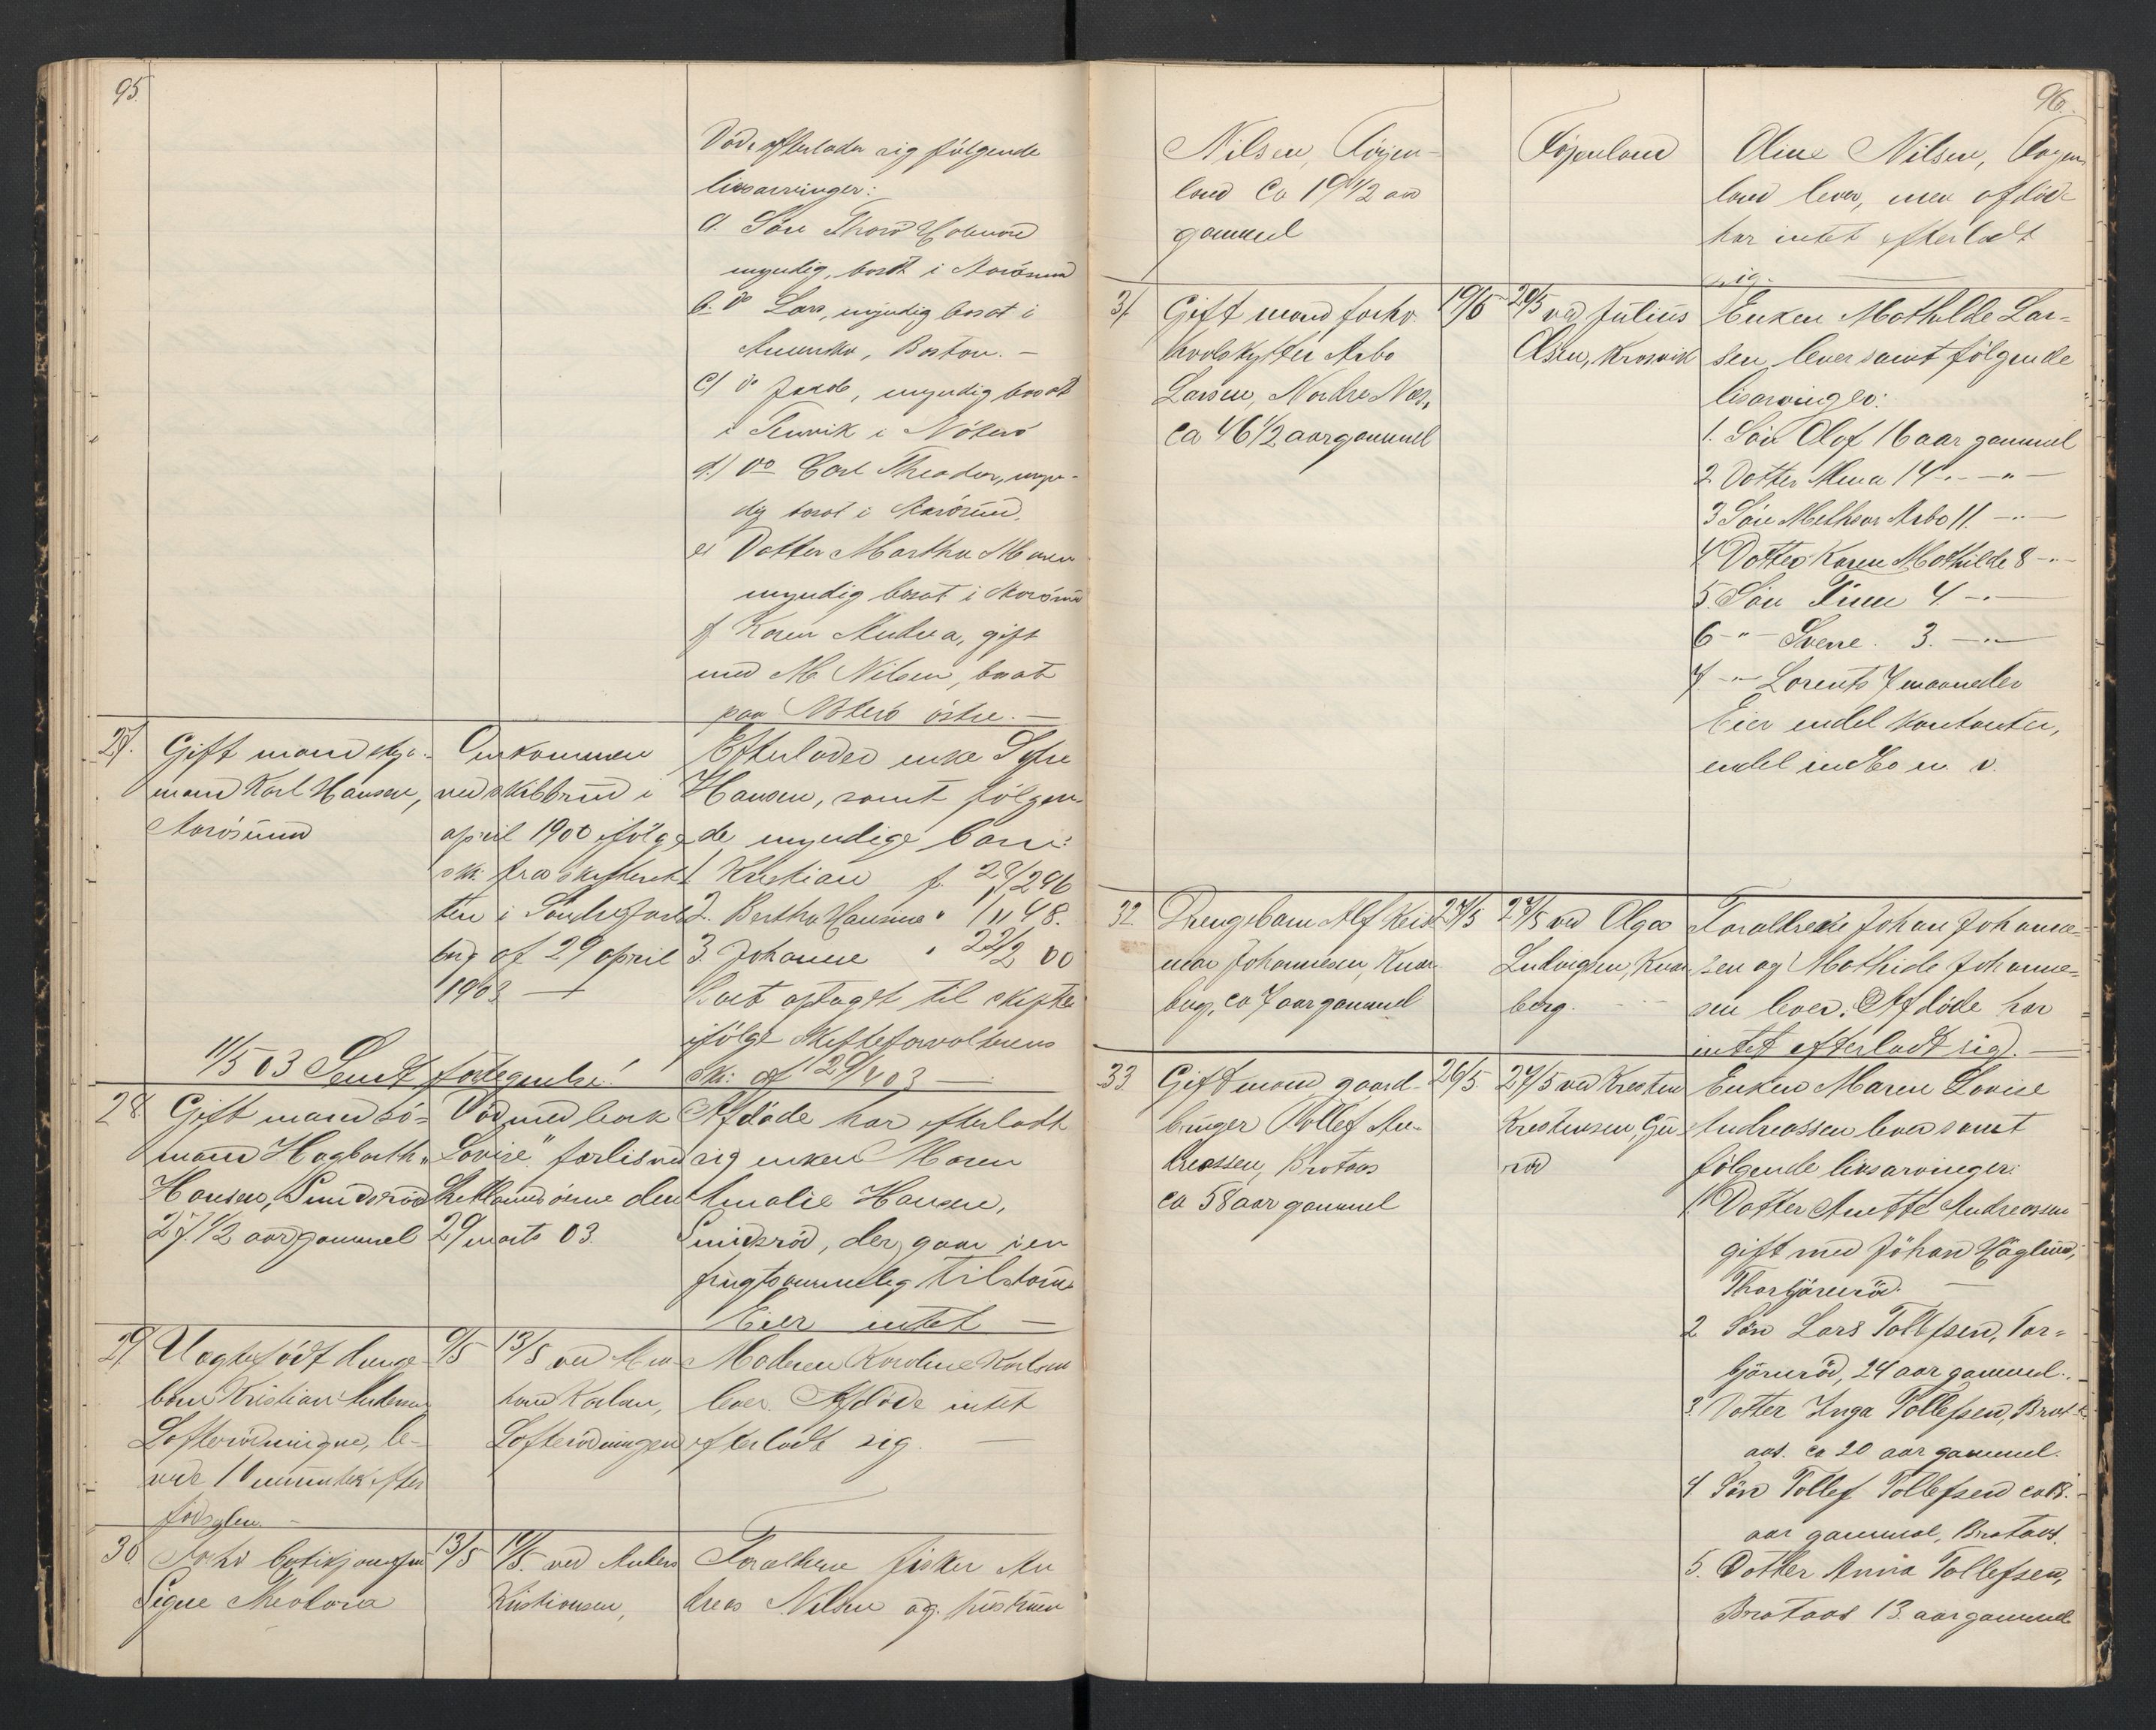 95.
Død. efterlader sig følgende
livsarvinger:
a. Søn Thorv
myndig, bosat i Aarøsund
b. do Lars, myndig bosat i
Amerika, Boston. —
c) do myndig bosat
i Tenvik i Nøterø
d.) do Carl Theodor, myn-
dig bosat i Aarøsund.
e) Datter Martha Maren
myndig bosat i Aarøsund
f. Karen Andrea, gift
med M. Nilsen, bosat
paa Nøterø østre. —
27. Gift mand
mand Karl Hansen,
Aarøsund
Omkommen
ved skibbrud i
april 1900 ifølge
skr. fra skifteret
ten i Søndre Jarls
berg af 29 april
1903 —
Efterlader enke
Hansen, samt følgen-
de myndige barn:
1. Kristian f.
2. Bertha "
3. Johanne "
Boet optaget til skifte
ifølge Skifteforvalterens
skr. af 29/4 03 —
11/5 03 Sendt fortegnelse!
28 Gift mand sø-
mand Hagbarth
Hansen, Sundsrød
27 1/2 aar gammel
Død med bark
"Lovise" forlis ved
Shetlandsøerne den
29 marts 03.
Afdøde har efterladt
sig enken Maren
Amalie Hansen,
Smidsrød, der gaar i en
frugtsommelig tilstand
Eier intet —
29 Uægtefødt drenge
barn Kristian Andersen
Lofterødningen, le-
vede 10 minuter efter
fødselen. —
9/5
13/5 ved
Karlsen,
Lofterødningen
Moderen Karoline Karlsen
lever. Afdøde intet
efterladt sig. —
30
Signe Theodora
13/5
19/5. ved Anders
Kristiansen,
Forældrene fisker An
dreas Nilsen og hustruen
96.
Nilsen, Føyen-
land Ca 19 1/2 aar
gammel
Føyenland
Oline Nilsen, Føyen
land lever, men afdøde
har intet efterladt
sig. —
31 Gift mand forhv.
hvalskytter Arbo
Larsen, Nordre Næs,
ca 46 1/2 aar gammel
19/5
20/5 ved Julius
Olsen,
Enken Mathilde Lar-
sen lever samt følgende
livsarvinger:
1. Søn Olaf 16 aar gammel
2. Datter 14 — " —
3 Søn Arbo 11. — " —
4 Datter Karen Mathilde 8 — " —
5. Søn 4. — " —
6 — " — Sverre. 3. — " —
7 — " — Lorents 7 maaneder
Eier endel kontanter,
endel indbo m. v.
32. Drengebarn Alf Reid
mar Johannesen, Knar
berg, ca 7 aar gammel
23/5
27/5 ved Olga
Ludvigsen, Knar
berg.
Forældrene Johan Johanne-
sen og Mathilde Johanne-
sen lever. Afdøde har
intet efterladt sig. —
33 Gift mand gaard-
bruger Tollef An-
dreassen, Brataas
ca 58 aar gammel
26/5
27/5 ved Kresten
Krestensen, Gu
rød
Enken Maren Lovise
Andreassen lever samt
følgende livsarvinger:
1. Datter Anette Andreassen
gift med Johan Høglund,
Thorbjørnrød. —
2 Søn Lars Tollefsen, Tor-
bjørnrød, 24 aar gammel.
3. Datter Inga Tollefsen, Brat-
aas. ca 20 aar gammel.
4. Søn Tollef Tollefsen ca 18.
aar gammel, Brataas.
5. Datter Anna Tollefsen,
Brataas 13 aar gammel